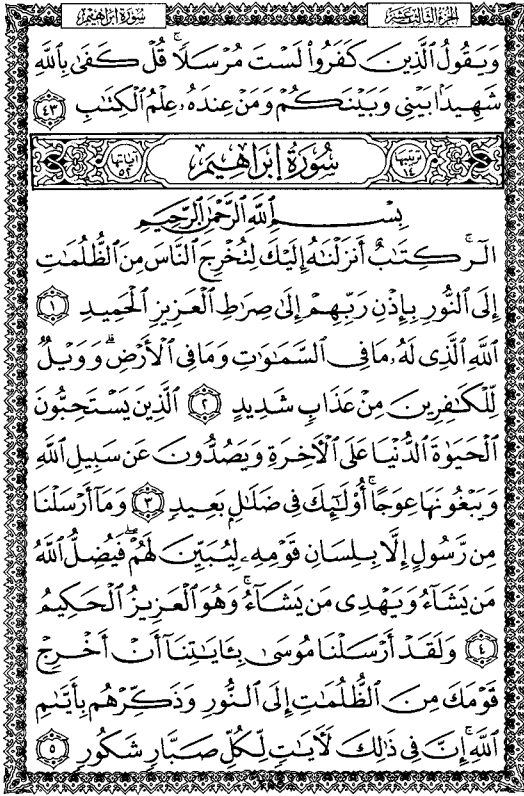 الجزء الثالث عشر
سورة إبراهيم
وَيَقُولُ الَّذِينَ كَفَرُوا لَسْتَ مُرْسَلًا ۚ قُلْ كَفَىٰ بِاللَّهِ
شَهِيدًا بَيْنِي وَبَيْنَكُمْ وَمَنْ عِندَهُ عِلْمُ الْكِتَابِ ٤٣
ترتيبها ١٤
سُورَةُ إِبْرَاهِيمَ
آياتها ٥٢
بِسْمِ اللَّهِ الرَّحْمَٰنِ الرَّحِيمِ
الٓر ۚ كِتَابٌ أَنزَلْنَاهُ إِلَيْكَ لِتُخْرِجَ النَّاسَ مِنَ الظُّلُمَاتِ
إِلَى النُّورِ بِإِذْنِ رَبِّهِمْ إِلَىٰ صِرَاطِ الْعَزِيزِ الْحَمِيدِ ١
اللَّهِ الَّذِي لَهُ مَا فِي السَّمَاوَاتِ وَمَا فِي الْأَرْضِ ۗ وَوَيْلٌ
لِّلْكَافِرِينَ مِنْ عَذَابٍ شَدِيدٍ ٢ الَّذِينَ يَسْتَحِبُّونَ
الْحَيَوٰةَ الدُّنْيَا عَلَى الْآخِرَةِ وَيَصُدُّونَ عَن سَبِيلِ اللَّهِ
وَيَبْغُونَهَا عِوَجًا ۚ أُولَٰئِكَ فِي ضَلَالٍ بَعِيدٍ ٣ وَمَا أَرْسَلْنَا
مِن رَّسُولٍ إِلَّا بِلِسَانِ قَوْمِهِ لِيُبَيِّنَ لَهُمْ ۖ فَيُضِلُّ اللَّهُ
مَن يَشَاءُ وَيَهْدِي مَن يَشَاءُ ۚ وَهُوَ الْعَزِيزُ الْحَكِيمُ
٤ وَلَقَدْ أَرْسَلْنَا مُوسَىٰ بِآيَاتِنَا أَنْ أَخْرِجْ
قَوْمَكَ مِنَ الظُّلُمَاتِ إِلَى النُّورِ وَذَكِّرْهُم بِأَيَّامِ
اللَّهِ ۚ إِنَّ فِي ذَٰلِكَ لَآيَاتٍ لِّكُلِّ صَبَّارٍ شَكُورٍ ٥